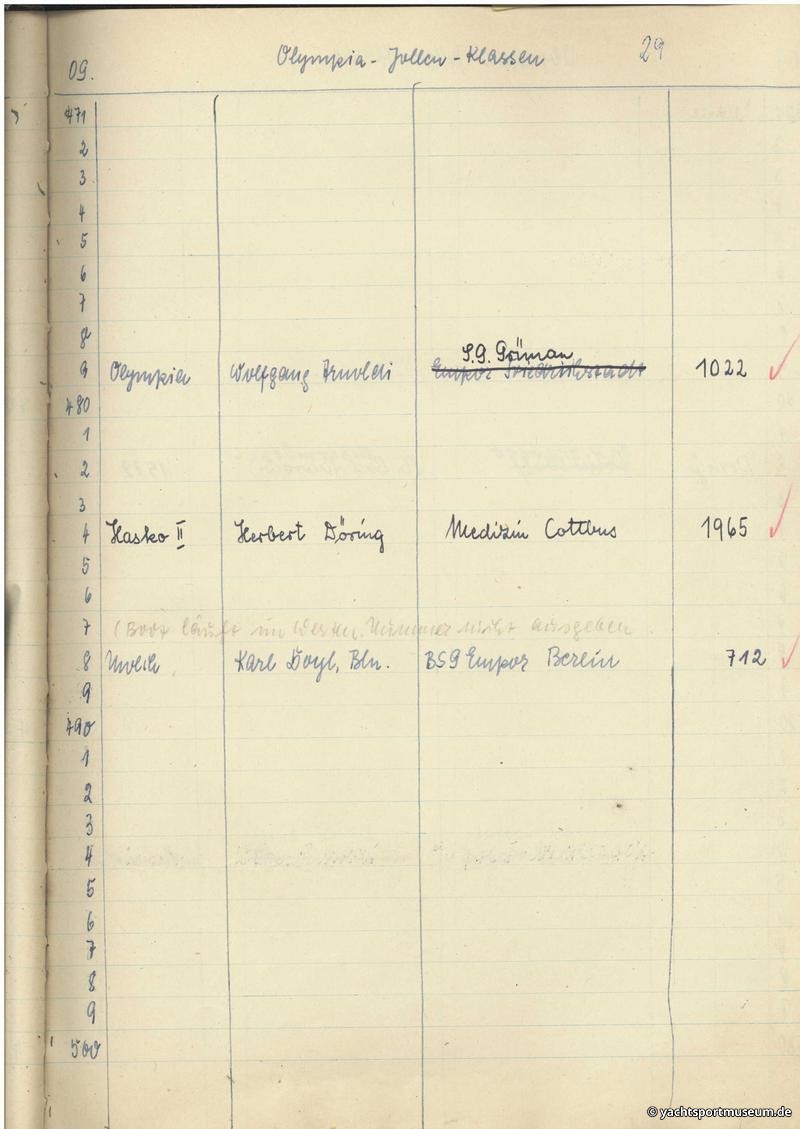 09. Olympia-Jollen-Klassen 29
471
2
3
4
5
6
7
8
S.G.
9 Olympia Wolfgang Arnoldi Empor Friedrichstadt 1022
480
1
2
3
4 Hasko II Herbert Döring Medizin Cottbus 1965
5
6
7 (Boot läuft im Westen. Nummer nicht ausgeben
8 Molch Karl Bln. BSG Empor Berlin 712
9
490
1
2
3
4
5
6
7
8
9
500
© yachtsportmuseum.de